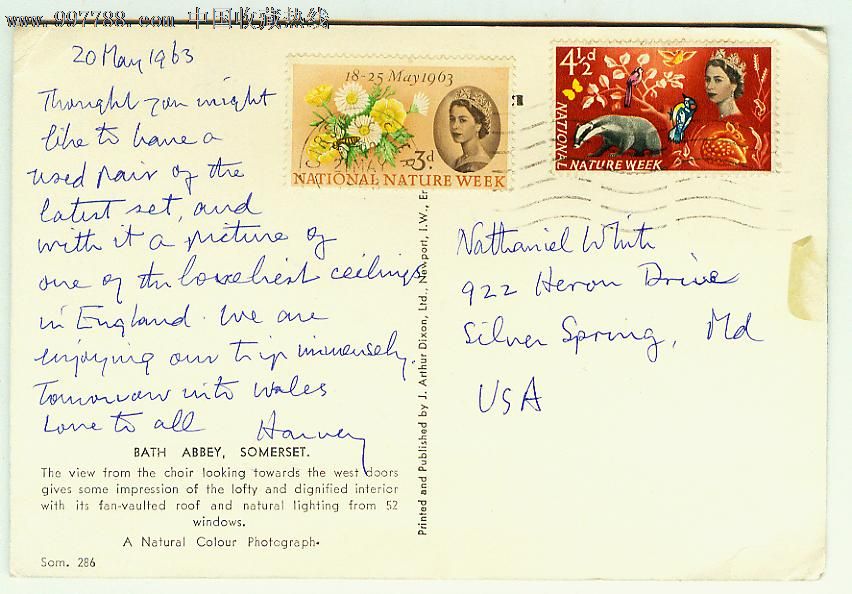 www.997788.com 中国收藏热线
20 May 1963
Thought you might
like to have a
used pair of the
latest set, and
with it a picture of
one of the loveliest ceilings
in England. We are
enjoying our trip immensely.
Tomorrow into Wales
Love to all Harvey
BATH ABBEY, SOMERSET.
The view from the choir looking towards the west doors
gives some impression of the lofty and dignified interior
with its fan-vaulted roof and natural lighting from 52
windows.
A Natural Colour Photograph.
Som. 286
Printed and Published by J. Arthur Dixon, Ltd., Newport, I.W., En
18-25 May 1963
3d
NATIONAL NATURE WEEK
4½d
NATIONAL NATURE WEEK
MAY
Nathaniel White
922 Heron Drive
Silver Spring, Md
USA